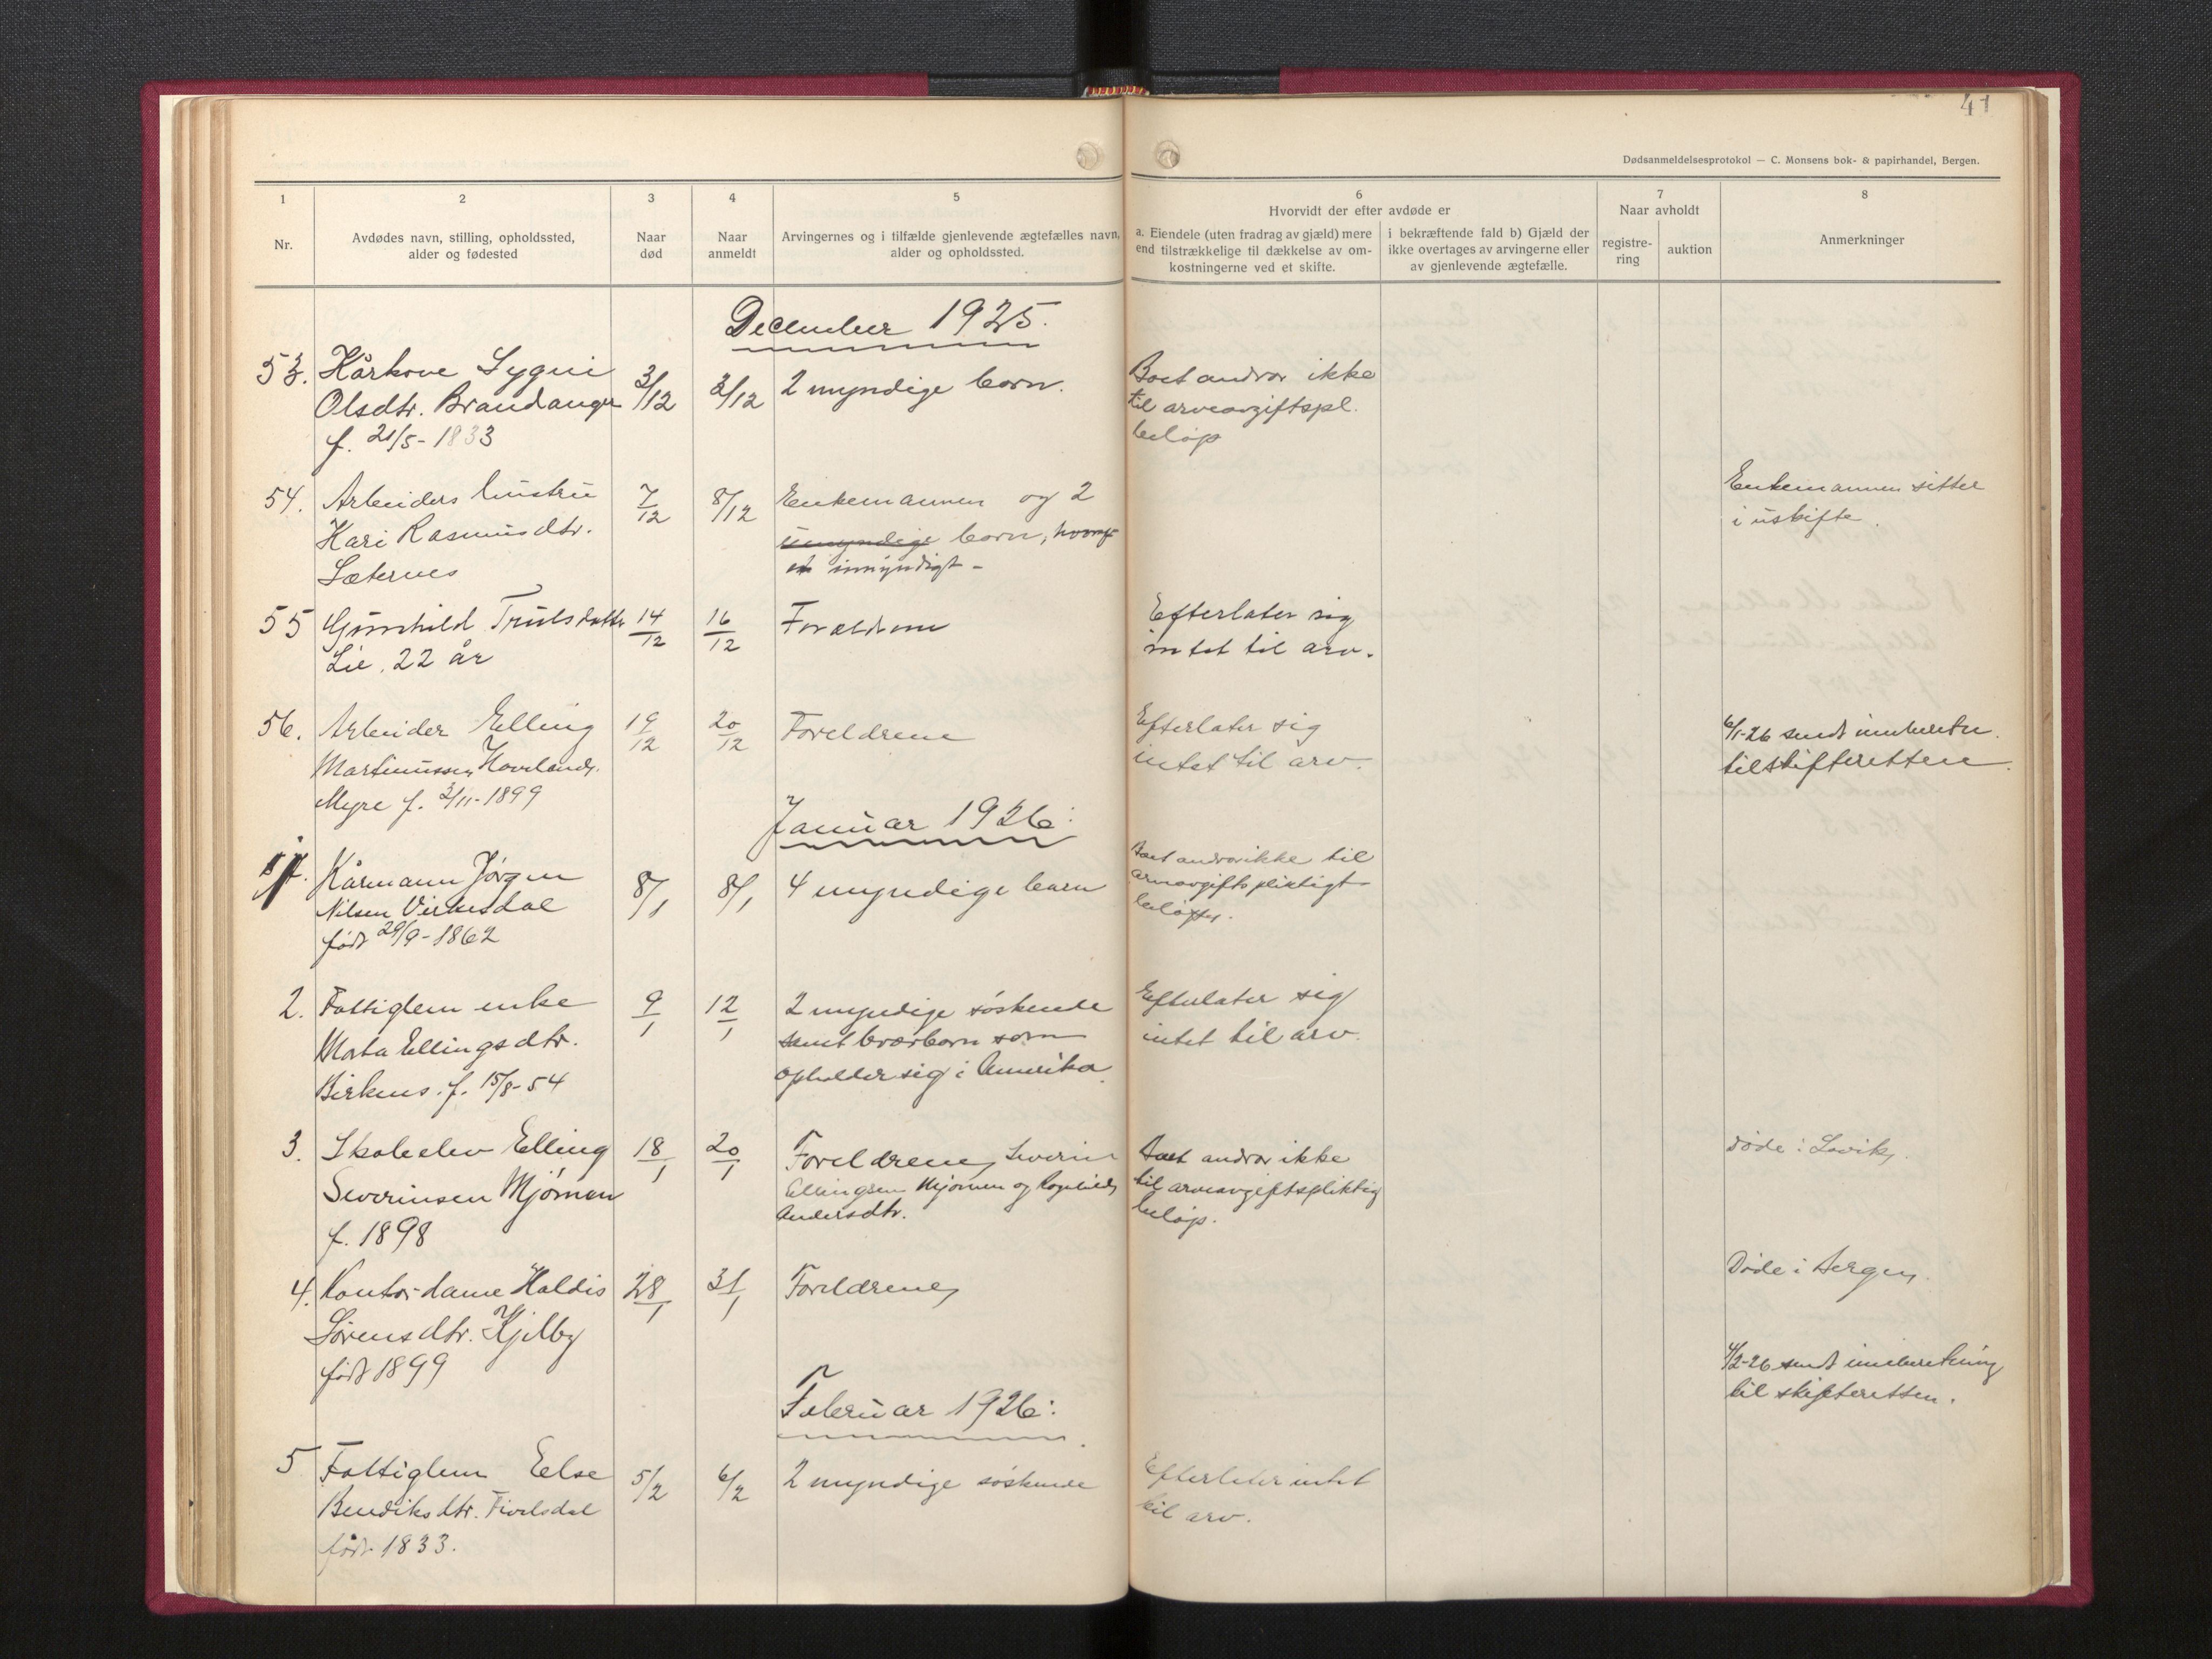 41
Dødsanmeldelsesprotokol — C. Monsens bok- & papirhandel, Bergen.
1
2
3
4
5
6
7
8
Nr.
Avdødes navn, stilling, opholdssted,
alder og fødested
Naar
død
Naar
anmeldt
Arvingernes og i tilfælde gjenlevende ægtefælles navn,
alder og opholdssted.
Hvorvidt der efter avdøde er
a. Eiendele (uten fradrag av gjæld) mere
end tilstrækkelige til dækkelse av om-
kostningerne ved et skifte.
i bekræftende fald b) Gjæld der
ikke overtages av arvingerne eller
av gjenlevende ægtefælle.
Naar avholdt
registre-
ring
auktion
Anmerkninger
December 1925.
53. Kårkone Sygni
Olsdtr. Brandanger
f. 21/5 - 1833
3/12
3/12
2 myndige born.
Boet andror ikke
til arveavgiftspl.
beløp
54. Arbeiders hustru
Kari Rasmusdtr.
Sæternes
7/12
8/12
Enkemannen og 2
umyndige born, hvoraf
et umyndigt -
Enkemannen sitter
i uskifte.
55 Gunhild Trulsdatter
Lie, 22 år
14/12
16/12
Forældrene
Efterlater sig
intet til arv.
56. Arbeider Elling
Martinussen Hovland,
Myre f. 3/11-1899
19/12
20/12
Foreldrene
Efterlater sig
intet til arv.
6/1-26 sendt innberetn.
til skifteretten.
Januar 1926:
1. Kårmann Jørgen
Nilsen Virkesdal
født 29/9-1862
8/1
8/1
4 myndige barn
Boet andror ikke til
arveavgiftspliktigt
beløp.
2. Fattiglem enke
Marta Ellingsdtr.
Birknes. f. 15/8-54
9/1
12/1
2 myndige søskende
samt brorborn som
opholder sig i Amerika.
Efterlater sig
intet til arv.
3. Skoleelev Elling
Severinsen Mjømen
f. 1898
18/1
20/1
Foreldrene, Severin
Ellingsen Mjømen og Ragnhild
Andersdtr.
Boet andror ikke
til arveavgiftspliktig
beløp.
Døde i Lavik.
4. Kontordame Haldis
Sørensdtr. Kjelby
født 1899
28/1
31/1
Foreldrene,
Døde i Bergen.
4/2-26 sendt inneberetning
til skifteretten.
Februar 1926:
5 Fattiglem Eelse
Bendiksdtr. Fivelsdal
født 1833.
5/2
6/2
2 myndige søskende
Efterlater intet
til arv.